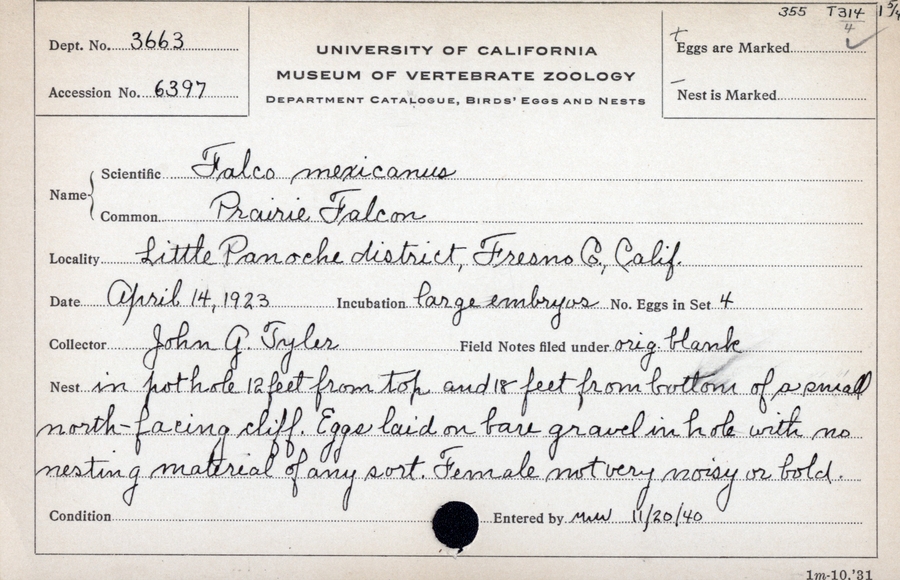 355 T314/4 1 5/4
Dept. No. 3663
UNIVERSITY OF CALIFORNIA
MUSEUM OF VERTEBRATE ZOOLOGY
DEPARTMENT CATALOGUE, BIRDS' EGGS AND NESTS
Accession No. 6397
+ Eggs are Marked ✓
– Nest is Marked
Name { Scientific Falco mexicanus
Common Prairie Falcon
Locality Little Panoche district, Fresno Co., Calif.
Date April 14, 1923 Incubation large embryos No. Eggs in Set 4
Collector John G. Tyler Field Notes filed under orig. blank
Nest in pothole 12 feet from top and 18 feet from bottom of a small
north-facing cliff. Eggs laid on bare gravel in hole with no
nesting material of any sort. Female not very noisy or bold.
Condition Entered by 11/20/40
1m-10,'31